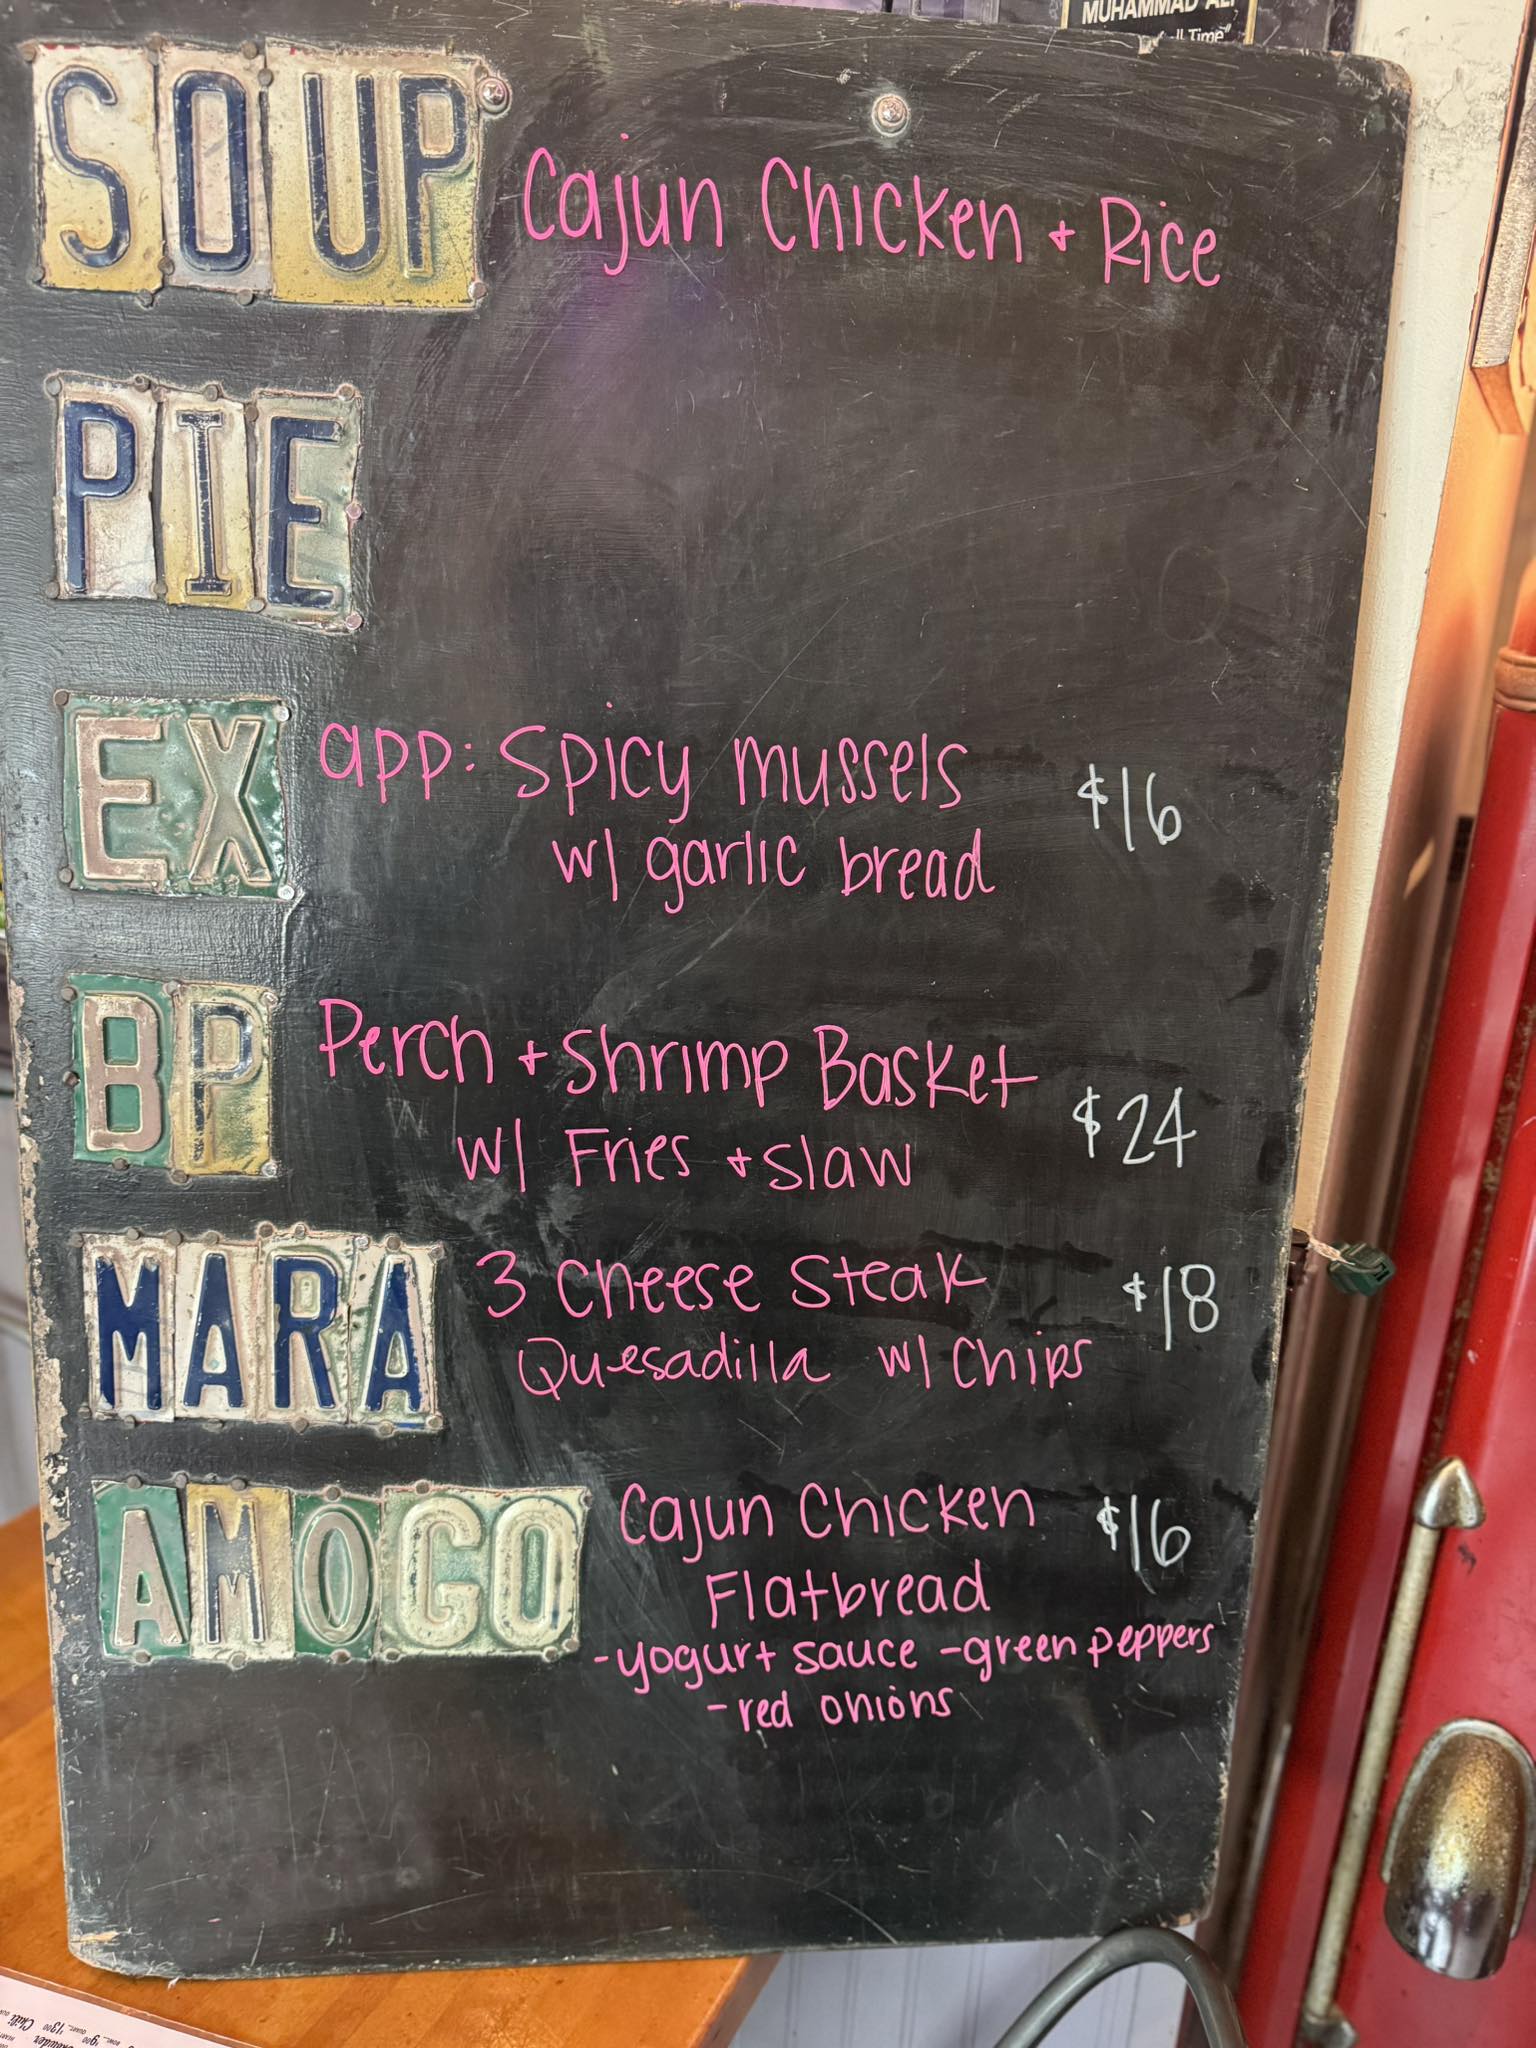 MUHAMMAD AL
ll Time"
SOUP Cajun Chicken + Rice
PIE
EX app: Spicy mussels $16
w/ garlic bread
BP Perch + Shrimp Basket $24
w/ Fries + slaw
MARA 3 Cheese Steak $18
Quesadilla w/ Chips
AMOCO Cajun Chicken $16
Flatbread
-yogurt sauce -green peppers
-red onions